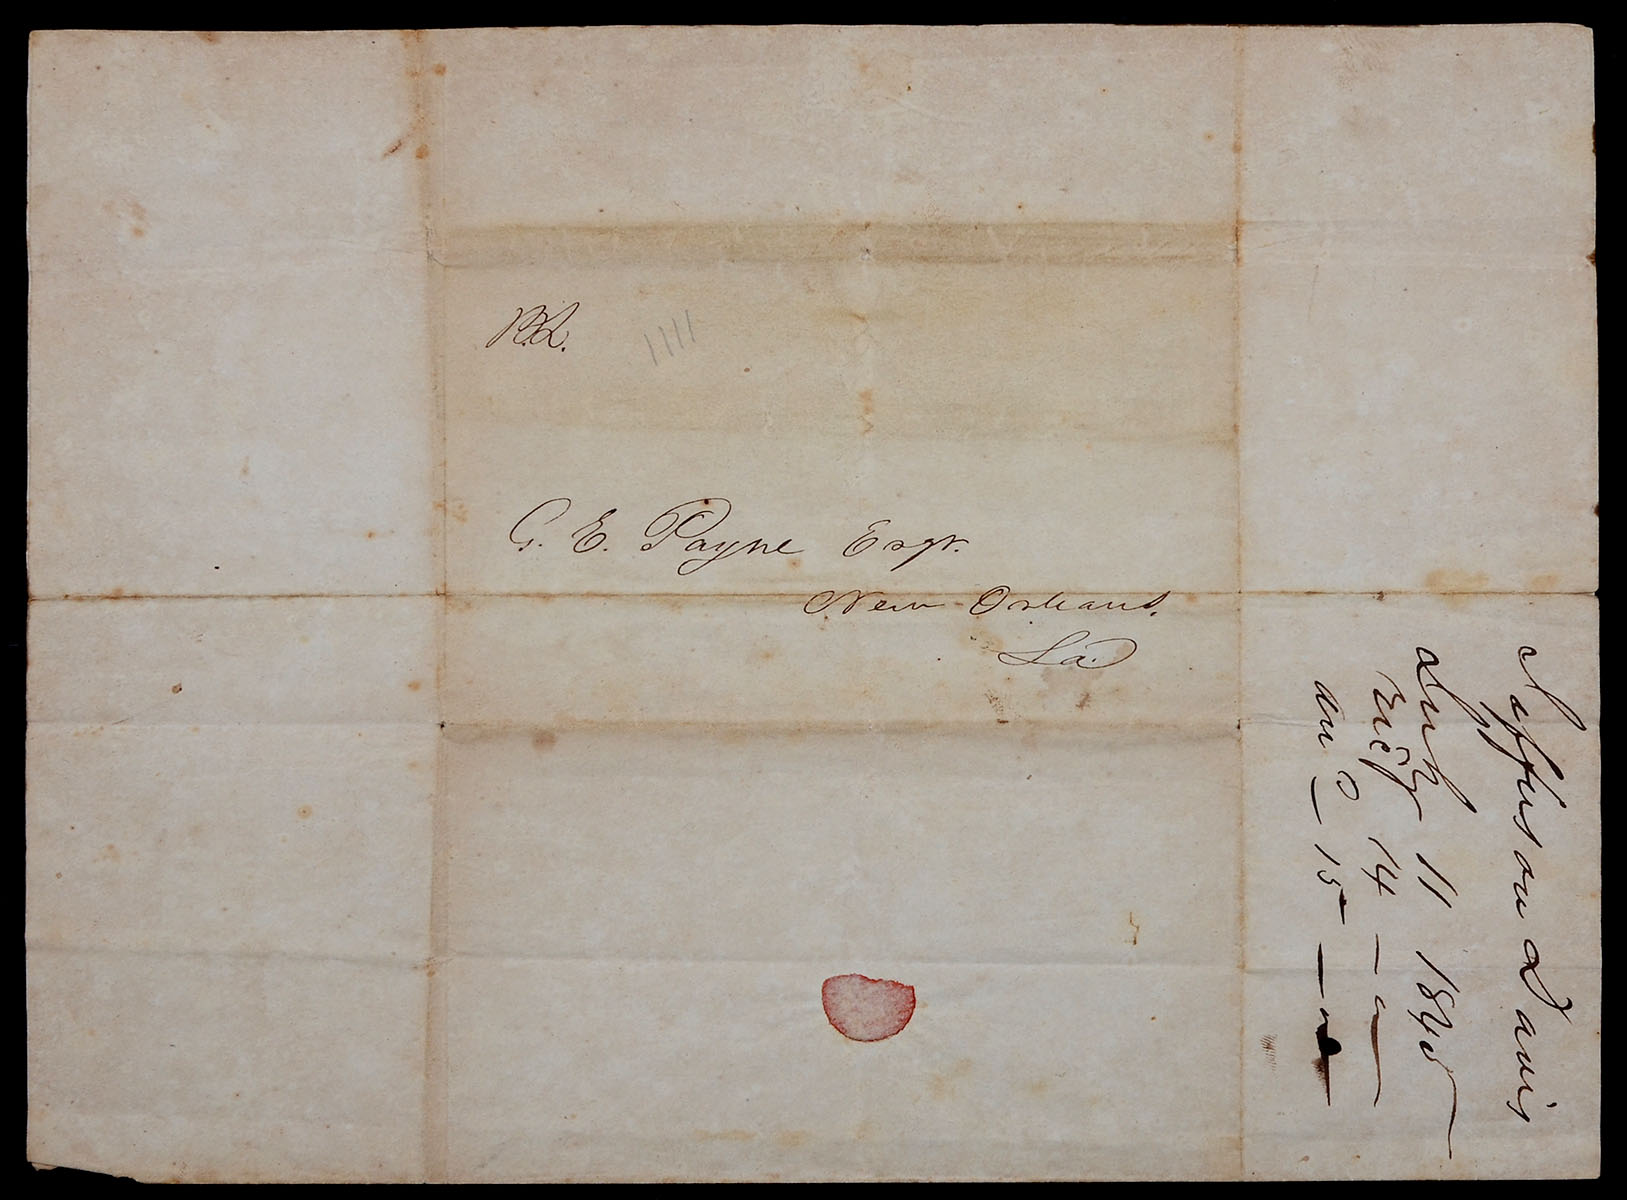 1111
G. E. Payne Esqr.
New Orleans.
La.
Jefferson Davis
Sept 11 1845
recd 14
ansd — 15 —